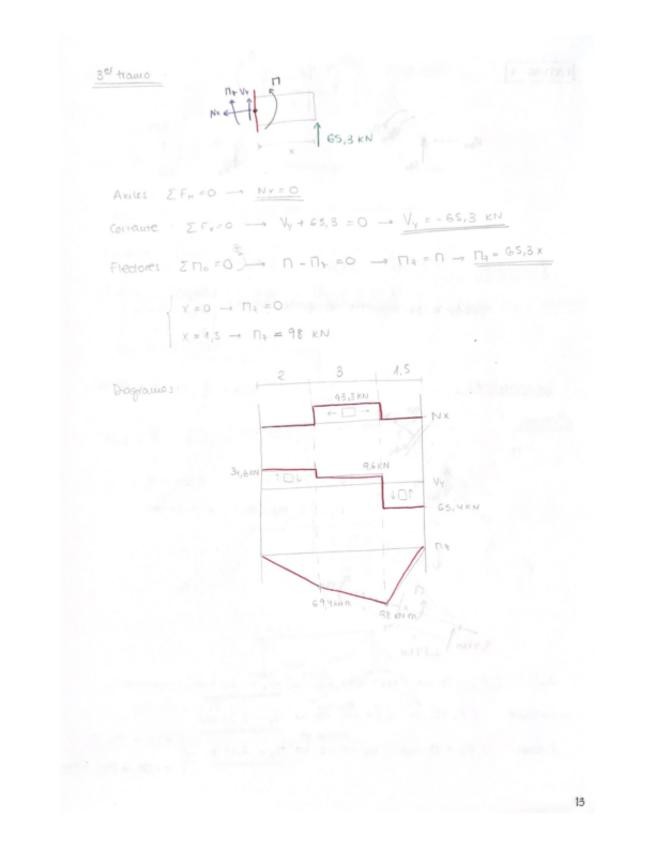 3er tramo
M
Mz Vy
Nx
65,3 KN
x
Axiles ΣFH=0 → Nx=0
Cortante ΣFV=0 → Vy+65,3=0 → Vy=-65,3 KN
Flectores ΣMD=0 → M-Mz=0 → Mz=M → Mz=65,3x
x=0 → Mz=0
x=1,5 → Mz=98 KN
Diagramas:
2 3 1,5
93,3KN
← □ →
Nx
34,6KN
9,6KN
↑□↓
Vy
↓□↑
65,4KN
Mz
69,4KNm
98 KNm
13